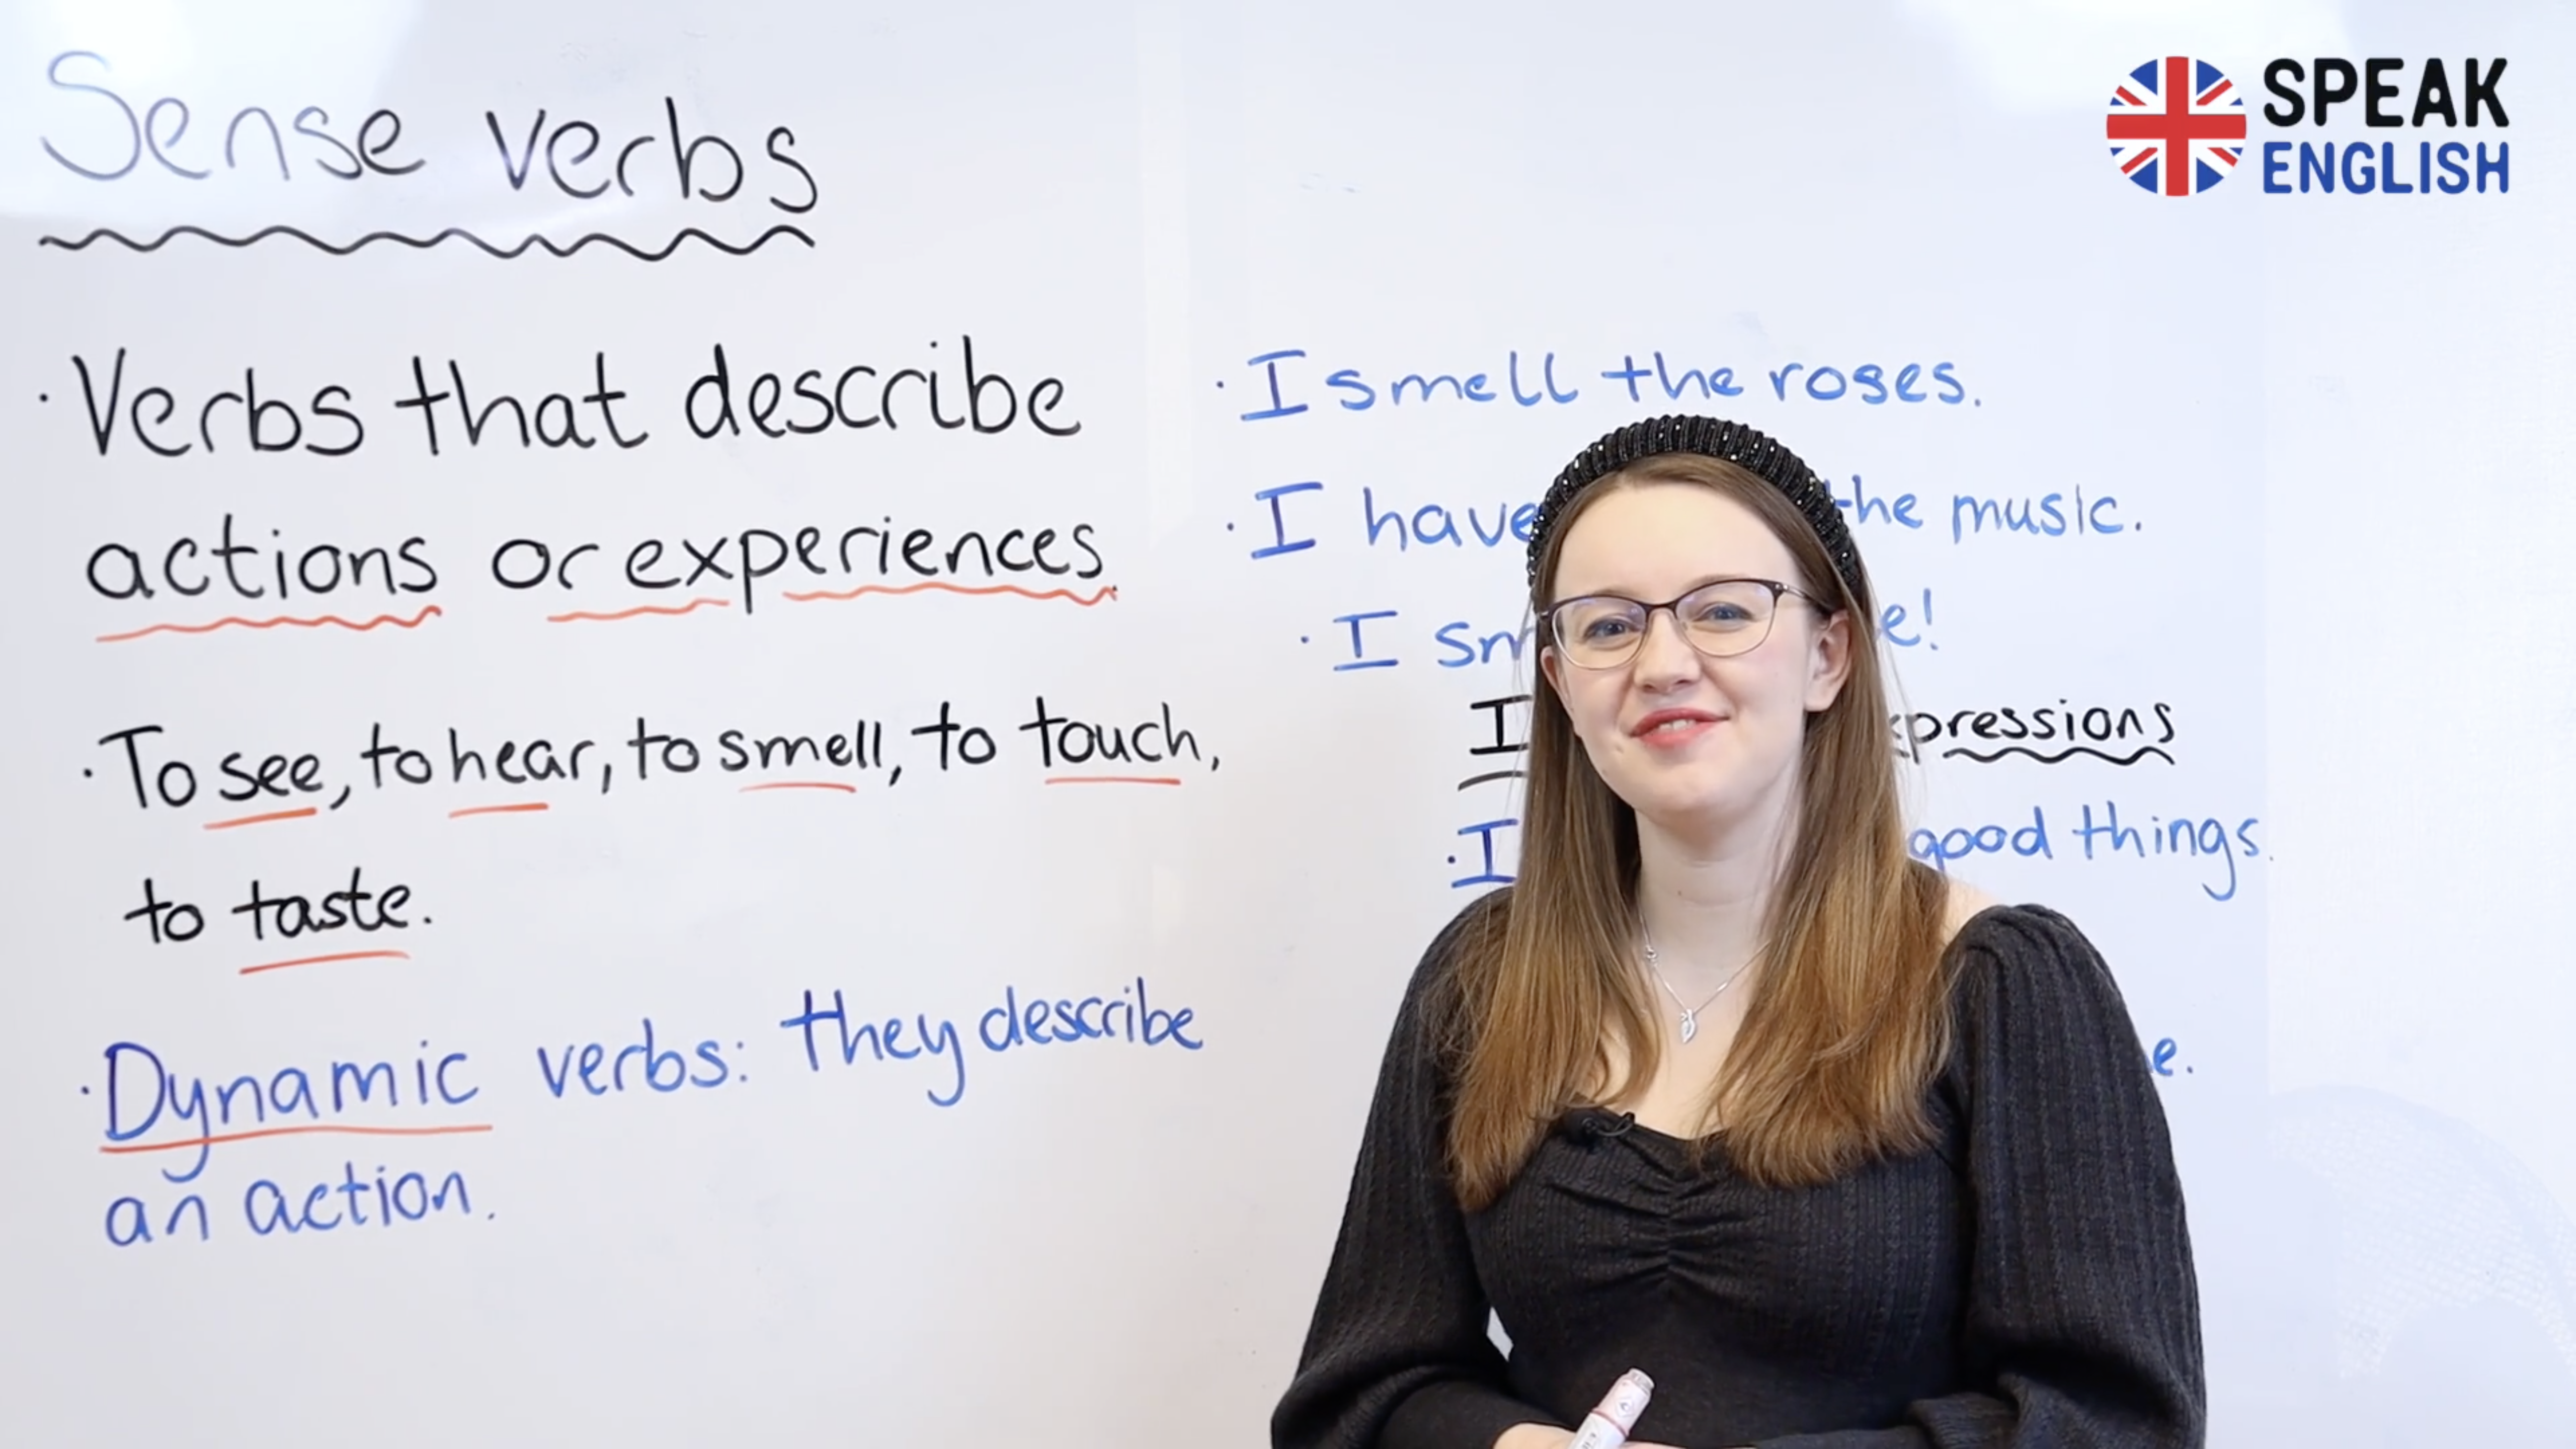 Sense verbs
· Verbs that describe
actions or experiences.
· To see, to hear, to smell, to touch,
to taste.
· Dynamic verbs: they describe
an action.
SPEAK
ENGLISH
· I smell the roses.
· I have the music.
· I
I
· I good things.